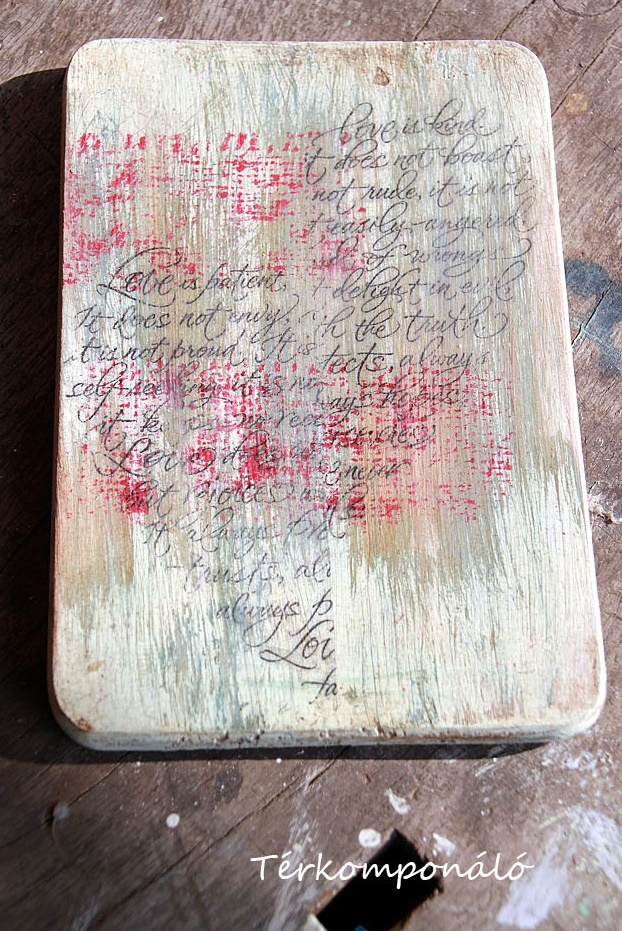 Love is kind
t does not boast,
not rude, it is not
t easily angered
of wrongs
t delight in evil
h the truth
tects, always
ays hopes
never
Love is patient,
It does not envy,
it is not proud. It is
self-seeking, it is no
it k no reco
Love does n
but rejoices w
It always pr
trusts, al
always p
Lo
fa
Térkomponáló